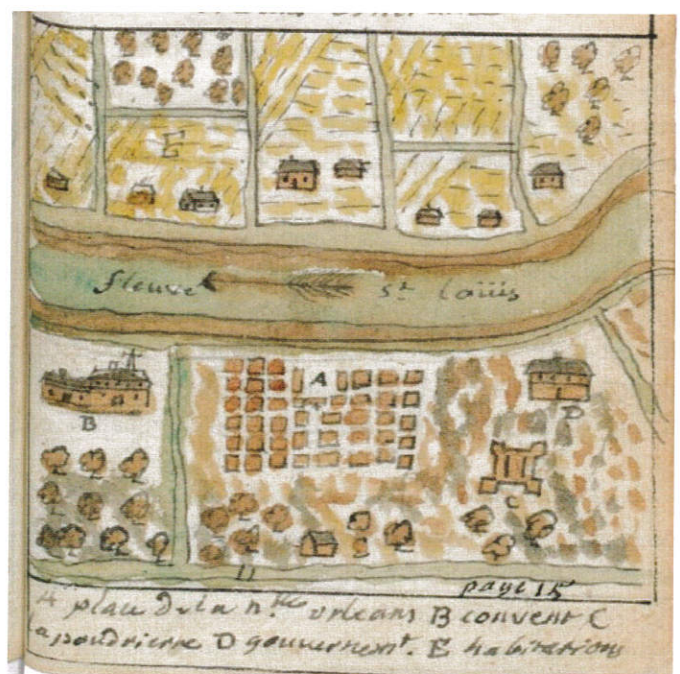 E
fleuve St. Loüis
A
B
D
C
11
page 15
A plan de la n.lle orleans B convent C
la poudrierre D gouvernemt. E habitations